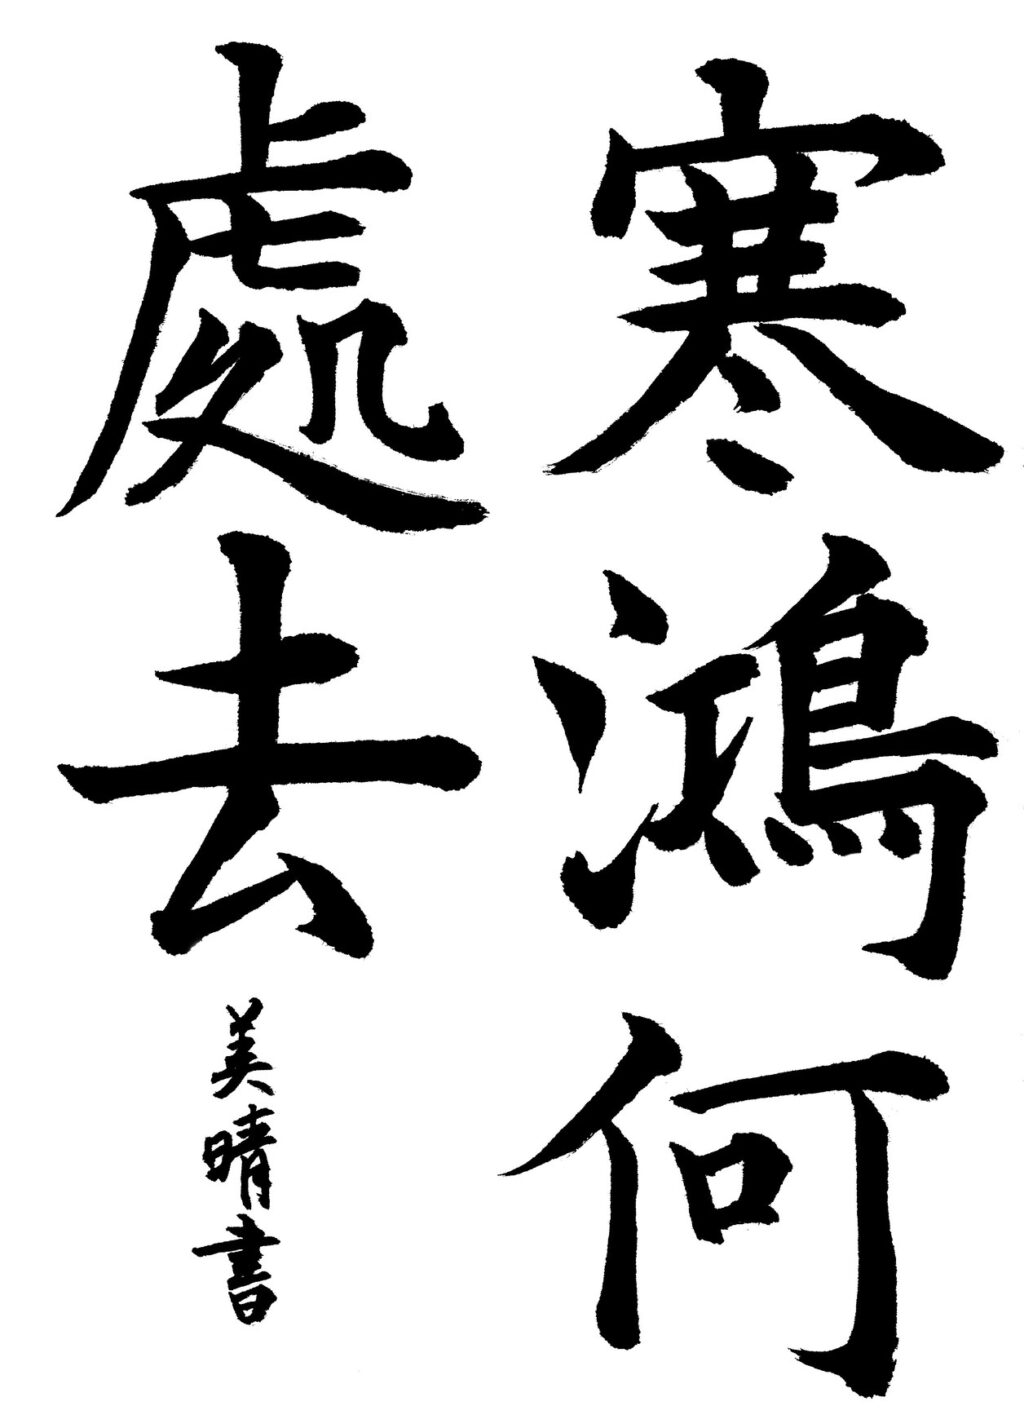 寒鴻何
處去
美晴書